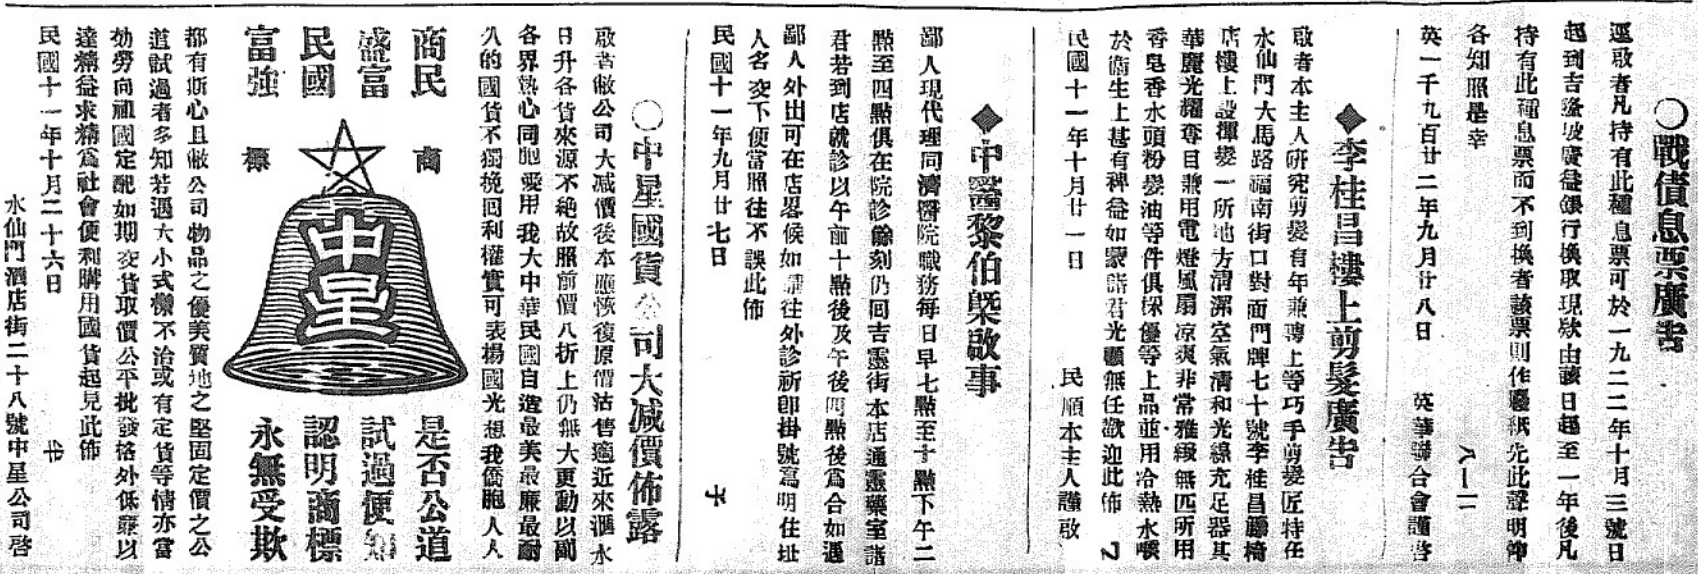 ○戰債息票廣告
逕啟者凡持有此種息票可於一九二二年十月三號日
起到吉隆坡廣益銀行換取現欵由該日起至一年後凡
持有此種息票而不到換者該票則作廢紙先此聲明仰
各知照是幸
英一千九百廿二年九月廿八日 英華聯合會謹啓
◆李桂昌樓上剪髮廣告
啟者本主人研究剪髮有年兼聘上等巧手剪髮匠特在
水仙門大馬路福南街口對面門牌七十號李桂昌藤椅
店樓上設攤髮一所地方清潔空氣清和光線充足器具
華麗光耀奪目兼用電燈風扇凉爽非常雅緻無匹所用
香皂香水頭粉髮油等件俱採優等上品並用冷熱水喉
於衛生上甚有裨益如蒙諸君光顧無任歡迎此佈
民國十一年十月廿一日 民順本主人謹啟
◆中醫黎伯槩啟事
鄙人現代理同濟醫院職務每日早七點至十點下午二
點至四點俱在院診餘刻仍回吉靈街本店通靈藥室諸
君若到店就診以午前十點後及午後四點後為合如遇
鄙人外出可在店畧候如請往外診祈卽掛號寫明住址
人名交下便當照往不誤此佈
民國十一年九月廿七日
○中星國貨公司大減價佈露
啟者敝公司大減價後本應恢復原價沽售適近來滙水
日升各貨來源不絶故照前價八折上仍無大更動以副
各界熱心同胞愛用我大中華民國自造最美最廉最耐
久的國貨不獨挽回利權實可表揚國光想我僑胞人人
商民
盛富
民國
富強
商標
中星
是否公道
試過便知
認明商標
永無受欺
都有斯心且敝公司物品之優美質地之堅固定價之公
道試過者多知若遇大小式樣不洽或有定貨等情亦當
効勞向祖國定配如期交貨取價公平批發格外低廉以
達精益求精為社會便利購用國貨起見此佈
民國十一年十月二十六日
水仙門酒店街二十八號中星公司啓